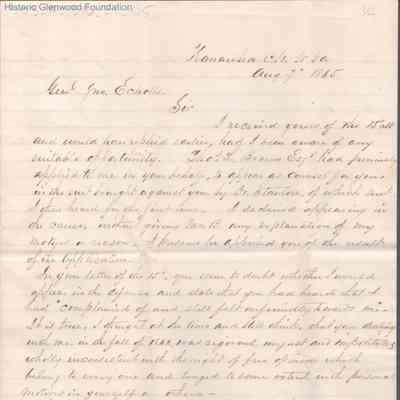 Historic Glenwood Foundation
Kanawha C.H. W. Va
Aug 7" 1865
Genl Jno. Echols
Sir
I received yours of the 1st
and would have replied earlier, had I been aware of any
suitable opportunity. Thos. L. Broun Esqr had previously
applied to me in your behalf, to appear as counsel for you
in the suit brought against you by Dr. of which suit
I then heard for the first time. I declined appearing in
the cause without giving any explanation of my
motives or reasons. I he apprised you of the result
of the application.
In your letter of the 1st you seem to doubt whether I would
appear in the defence and state that you had heard that I
had "complained of and still felt unfriendly towards me"
It is true, I thought at the time and still think, that your dealing
with me in the fall of 1862 was rigorous unjust and
wholly inconsistent with the right of free opinion which
belong to every one and tinged to some extent with personal
motives in yourself or others —